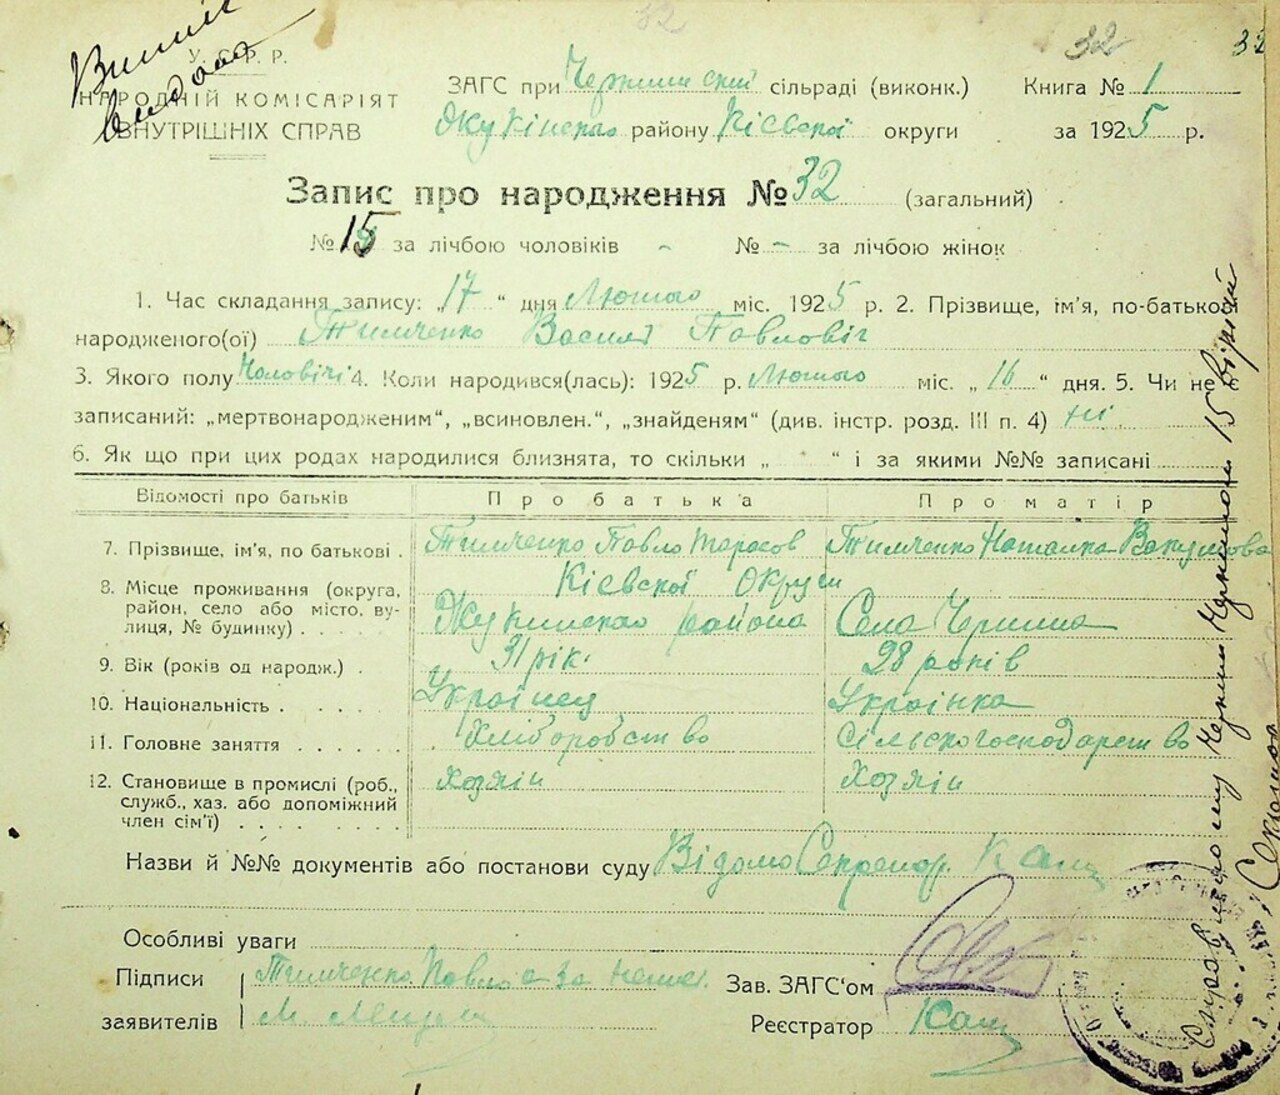 32
32
32
Випис
видано
У. С. Р. Р.
НАРОДНІЙ КОМІСАРІЯТ
ВНУТРІШНІХ СПРАВ
ЗАГС при Чернинскій сільраді (виконк.)
Жукінскаго району Кієвскої округи
Книга № 1
за 1925 р.
Запис про народження № 32 (загальний)
№ 15 за лічбою чоловіків - № - за лічбою жінок
1. Час складання запису: „17“ дня Лютого міс. 1925 р. 2. Прізвище, ім’я, по-батькові
народженого(ої) Тимченко Василь Павловіч
3. Якого полу Чоловічі 4. Коли народився(лась): 1925 р. Лютого міс. „16“ дня. 5. Чи не
записаний: „мертвонародженим“, „всиновлен.“, „знайденям“ (див. інстр. розд. III п. 4) ні
6. Як що при цих родах народилися близнята, то скільки „ “ і за якими №№ записані
Відомості про батьків Про батька Про матір
7. Прізвище, ім’я, по батькові . Тимченко Павло Тарасов Тимченко Наталка Вакумова
8. Місце проживання (округа, Кієвскої Округи
район, село або місто, ву- Жукинскаго района Села Чернина
лиця, № будинку) . . . . .
9. Вік (років од народж.) . 31 рік. 28 років
10. Національність . . . . Українец Українка
11. Головне заняття . . . . . . Хліборобство Сільскогосподарство
12. Становище в промислі (роб., Хозяін Хозяін
служб., хаз. або допоміжний
член сім’ї) . . . . . . . .
Назви й №№ документів або постанови суду Відомо Секретар.
Особливі уваги
Підписи Тимченко Павло а за негог. Зав. ЗАГС’ом
заявителів М. Реєстратор
Справленому Чернин Чернилом 15 вірний